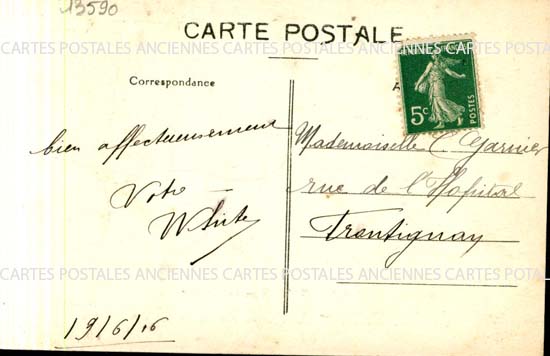 13590
CARTE POSTALE
CARTES POSTALES ANCIENNES CARTES POSTALES ANCIENNES CARTES POSTA
Correspondance
5c
POSTES
bien affectueusement
Votre
Mademoiselle C. Garnier
rue de l'Hopital
Frontignan
CARTES POSTALES ANCIENNES CARTES POSTALES ANCIENNES CARTES POTA
19/6/16